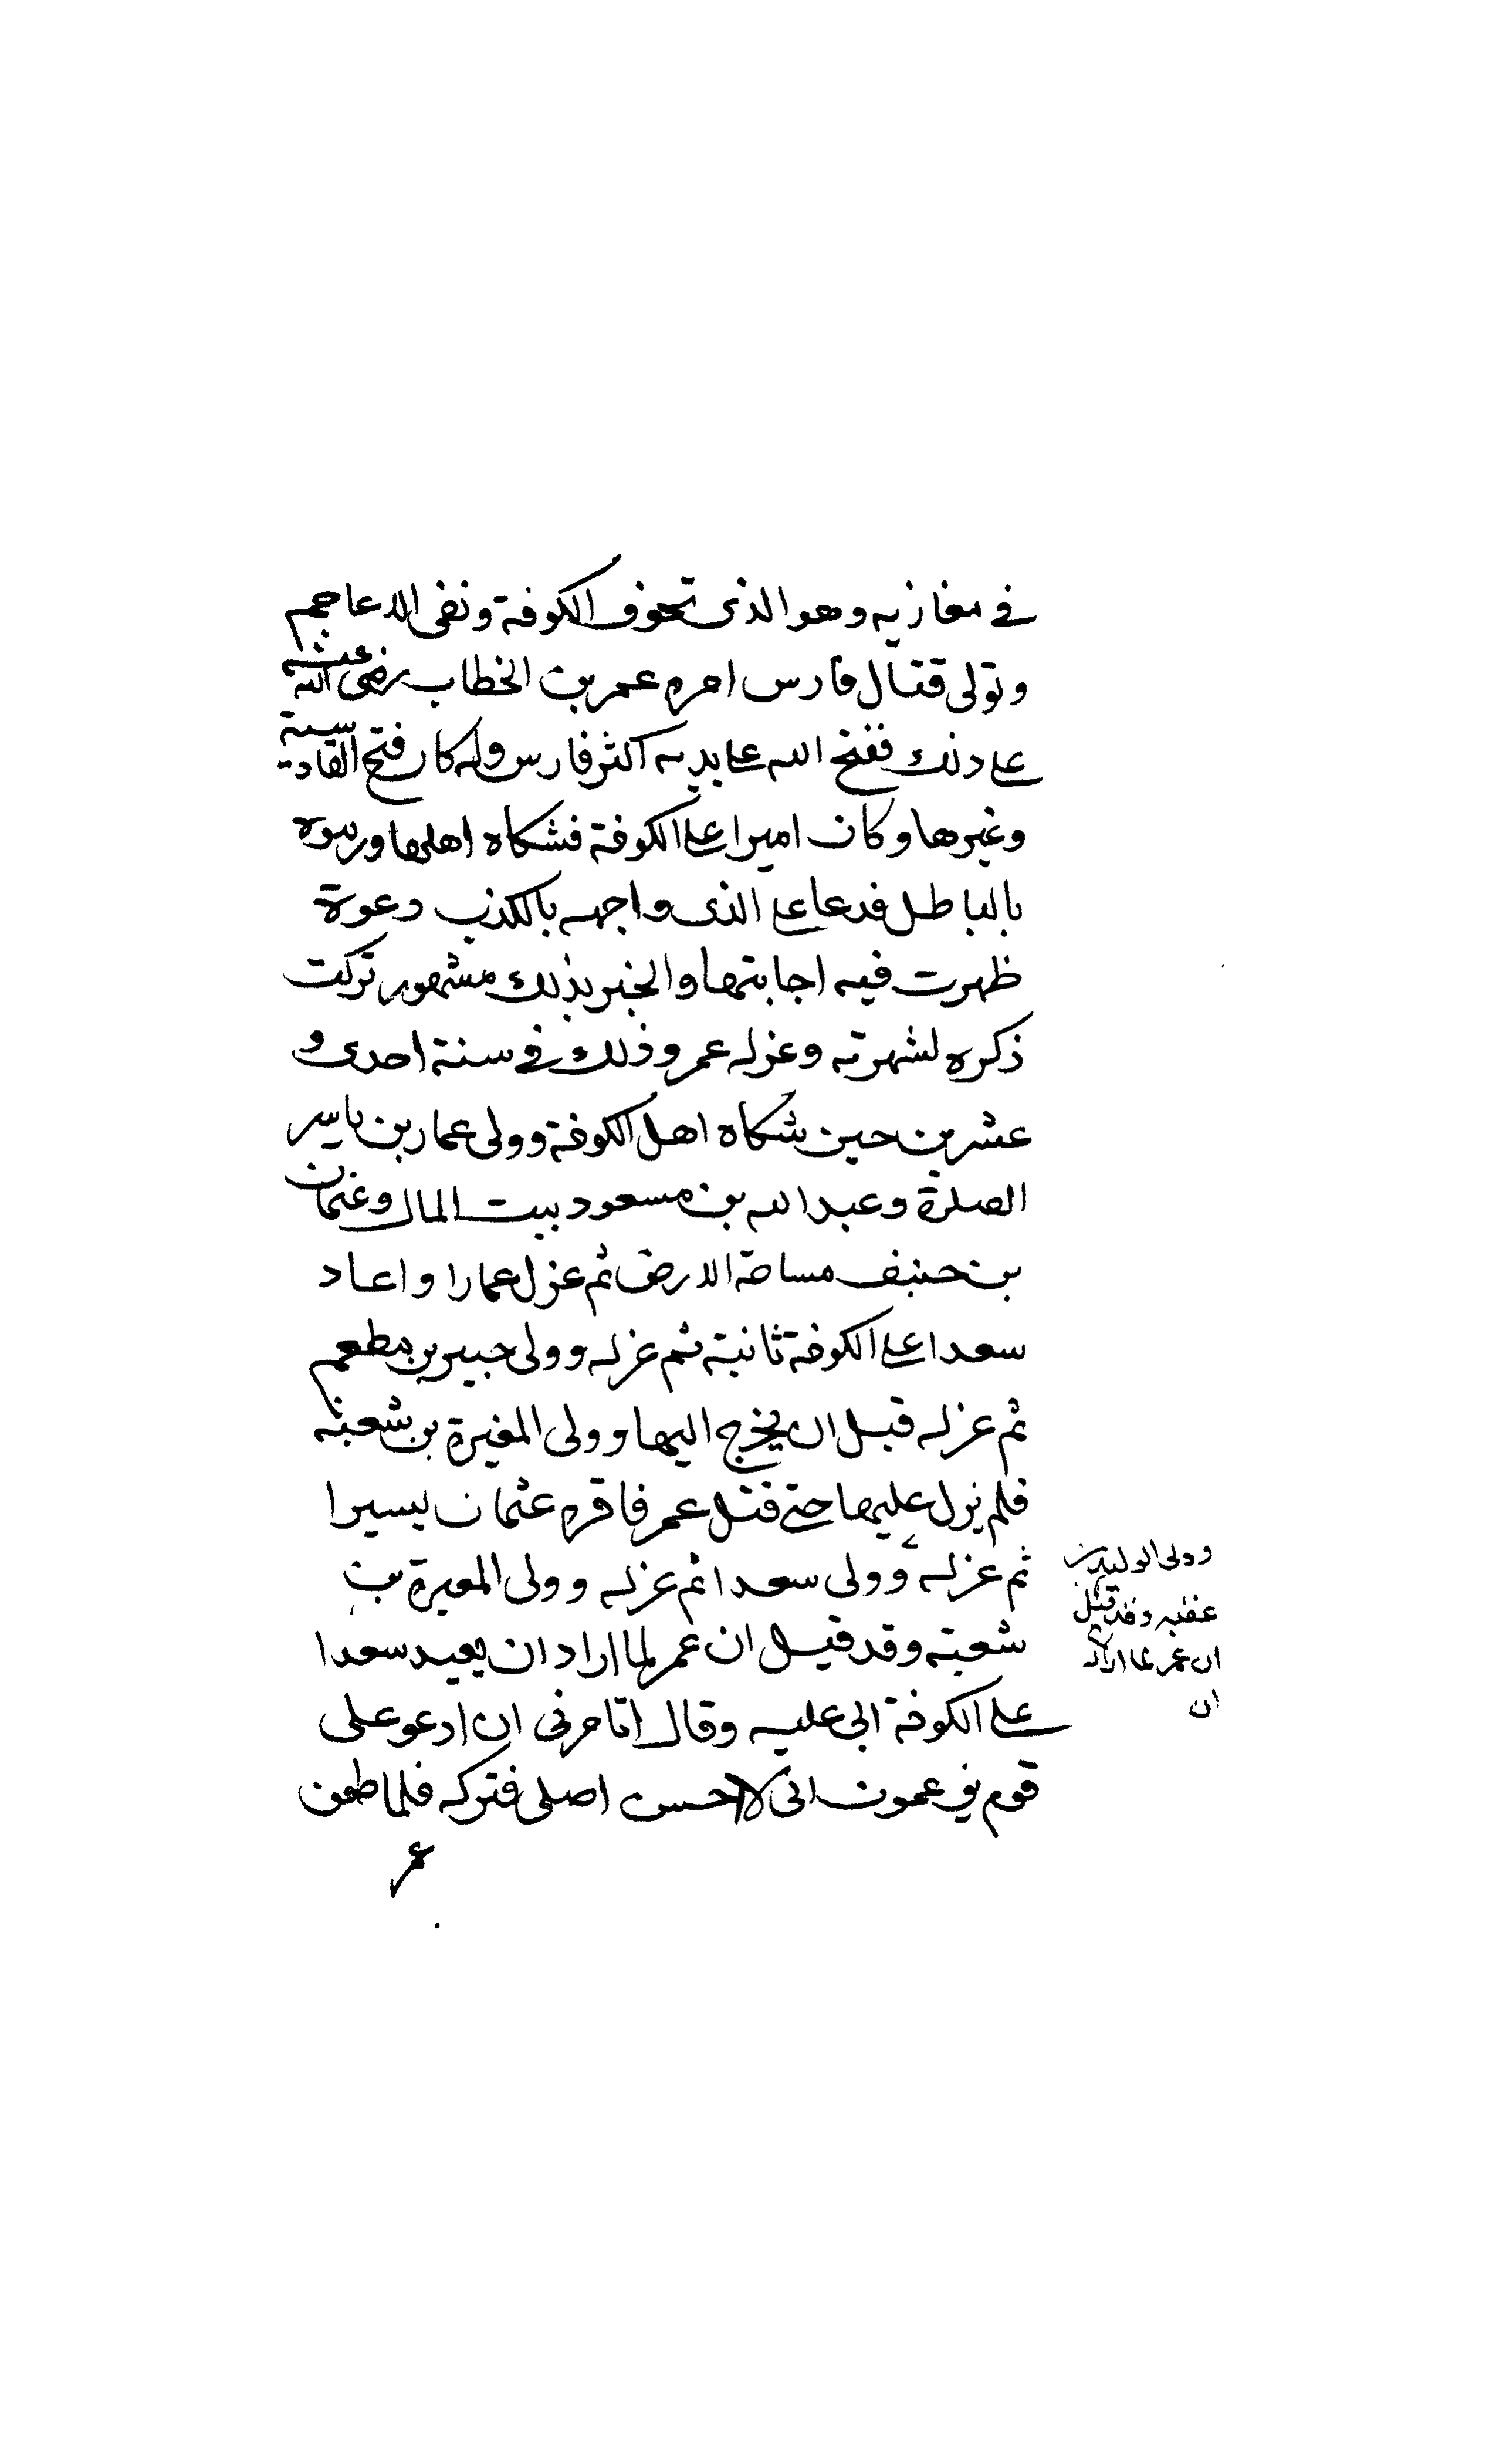 في مغازيه وهو الذى تحوف الكوفة ونفى الاعاجم
وتولى قتال فارس امره عمر بن الخطاب رضى الله عنه
على ذلك ففتح الله على يديه اكثر فارس وله كان فتح القادسية
وغيرها وكان اميرا على الكوفة فشكاه اهلها ورموه
بالباطل فدعا على الذى واجهه بالكذب دعوة
ظهرت فيه اجابتها والخبر بذلك مشهور تركت
ذكره لشهرته وعزله عمر وذلك في سنة احدى و
عشرين حين شكاه اهل الكوفة وولى عمار بن ياسر
الصلوة وعبد الله بن مسعود بيت المال وعثمان
بن حنيف مساحة الارض ثم عزل عمارا واعاد
سعدا على الكوفة ثانية ثم عزله وولى جبير بن مطعم
ثم عزله قبل ان يخرج اليها وولى المغيرة بن شعبة
فلم يزل عليها حتى قتل عمر فاقره عثمان يسيرا
ثم عزله وولى سعدا ثم عزله وولى المغيرة بن
شعبة وقد قيل ان عمر لما اراد ان يعيد سعدا
على الكوفة ابى عليه وقال اتامرنى ان ادعو على
قوم يزعمون انى لا احسن اصلى فتركه فلما طعن
عمر
وولى الوليد بن
عقبه وقد قيل
ان عمر لما اراد
ان